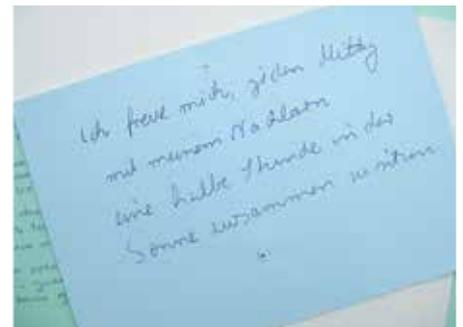 Ich freue mich, jeden Mittag
mit meinem Nachbarn
eine halbe Stunde in der
Sonne zusammen zu sitzen.